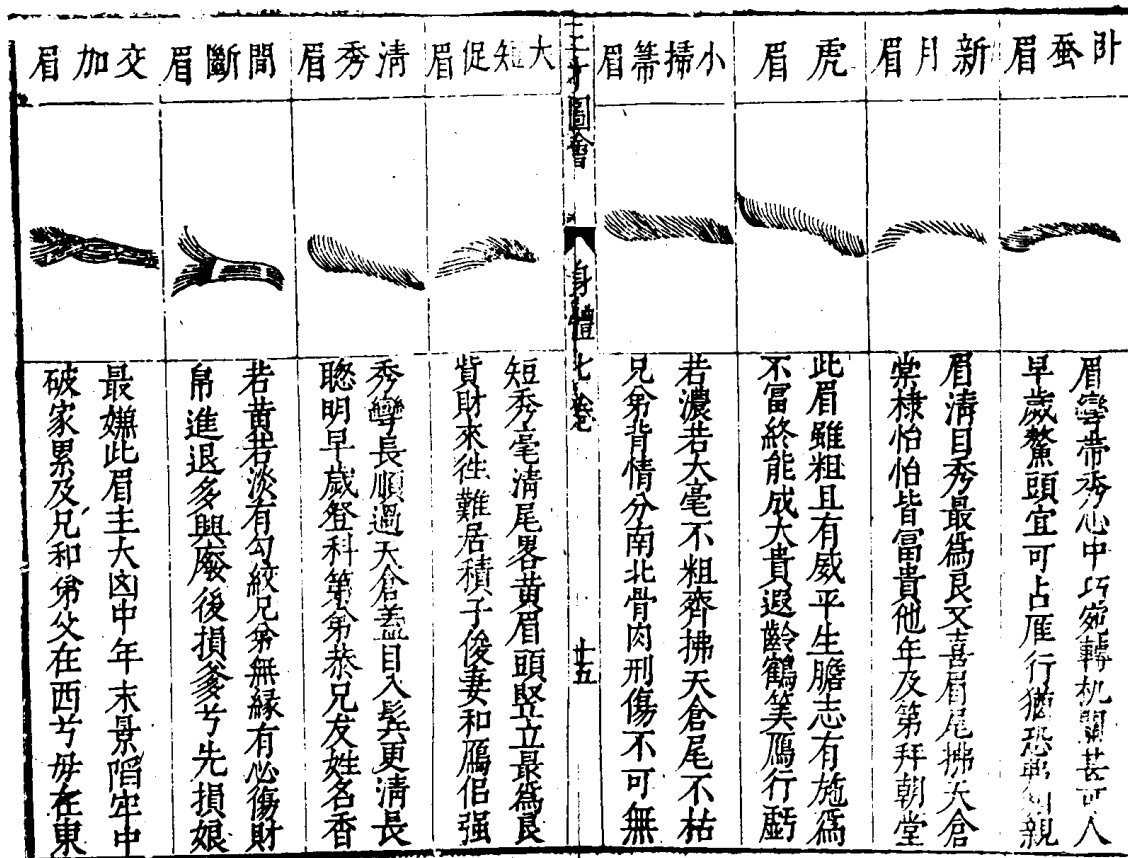 卧蚕眉
眉彎帶秀心中巧宛轉机關甚可人
早歲鰲頭宜可占雁行猶恐親
新月眉
眉清目秀最爲良又喜眉尾拂天倉
棠棣怡怡皆富貴他年及第拜朝堂
虎眉
此眉雖粗且有威平生膽志有施爲
不富終能成大貴遐齡鶴筭鴈行虧
小掃箒眉
若濃若大毫不粗齊拂天倉尾不枯
兄弟背情分南北骨肉刑傷不可無
三才圖會
身體七卷
廿五
大短促眉
短秀毫清尾畧黄眉頭竪立最爲良
貲財來徃難居積子俊妻和鴈侣强
清秀眉
秀彎長順過天倉蓋目入鬂更清長
聰明早歲登科第弟恭兄友姓名香
間斷眉
若黄若淡有勾紋兄弟無緣有必傷財
帛進退多興廢後損爹兮先損娘
交加眉
最嫌此眉主大凶中年末景陷牢中
破家累及兄和弟父在西兮母在東